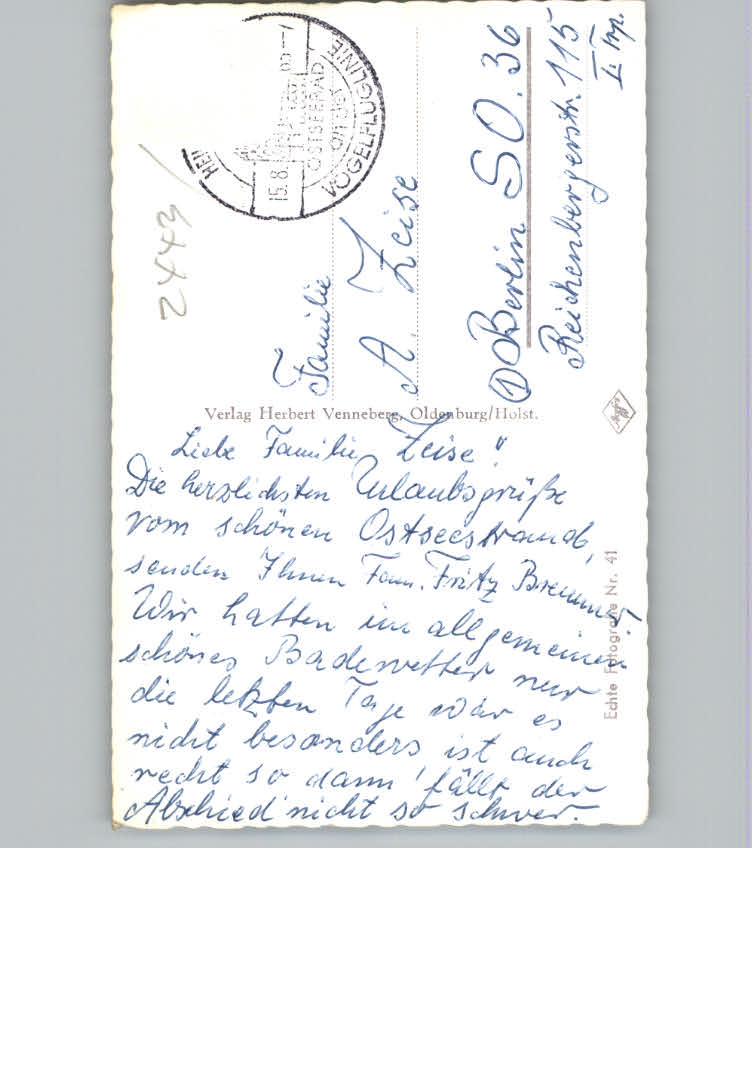 Liebe Familie Zeise!
Die herzlichsten Urlaubsgrüße
vom schönen Ostseestrand,
senden Ihnen Fam. Fritz
Wir hatten im allgemeinen
schönes Badewetter nur
die letzten Tage war es
nicht besonders ist auch
recht so dann fällt der
Abschied nicht so schwer.
Verlag Herbert Venneberg, Oldenburg/Holst.
Echte Fotografie Nr. 41
Familie
A. Zeise
① Berlin SO. 36
Reichenbergerstr. 115
II Trp.
15.8.
OSTSEEBAD
an der
VOGELFLUGLINIE
2443